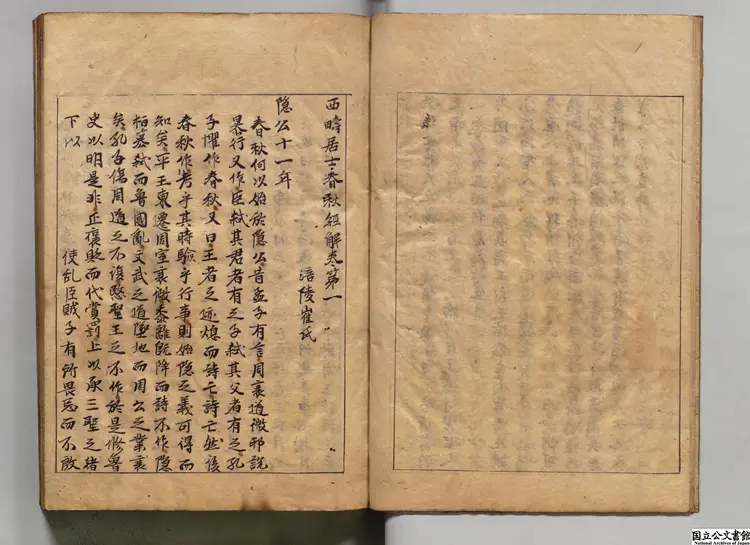 西疇居士春秋經解卷第一
涪陵崔氏
隐公十一年
春秋何以始於隐公昔孟子有言周衰道微邪説
暴行又作臣弑其君者有之子弑其父者有之孔
子懼作春秋又曰王者之迹熄而詩亡詩亡然後
春秋作考乎其時驗乎行事則始隐之義可得而
知矣平王東遷周室衰微黍離既降而詩不作隐
桓簒弑而魯國亂文武之道墜地而周公之業衰
矣孔子傷周道之不復愍聖王之不作於是修魯
史以明是非正褒貶而代賞罰上以承三聖之緒
下以 使乱臣賊子有所畏忌而不敢
国立公文書館
National Archives of Japan